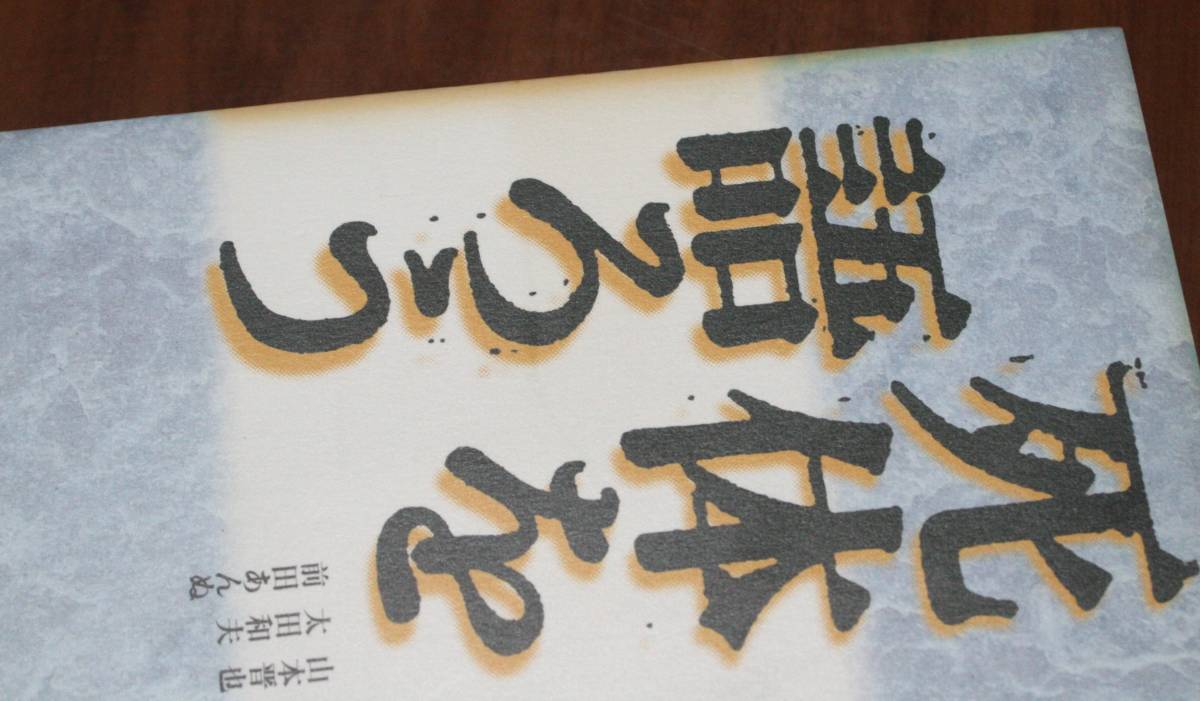 死体を
語ろう
山本晋也
太田和夫
前田あんぬ